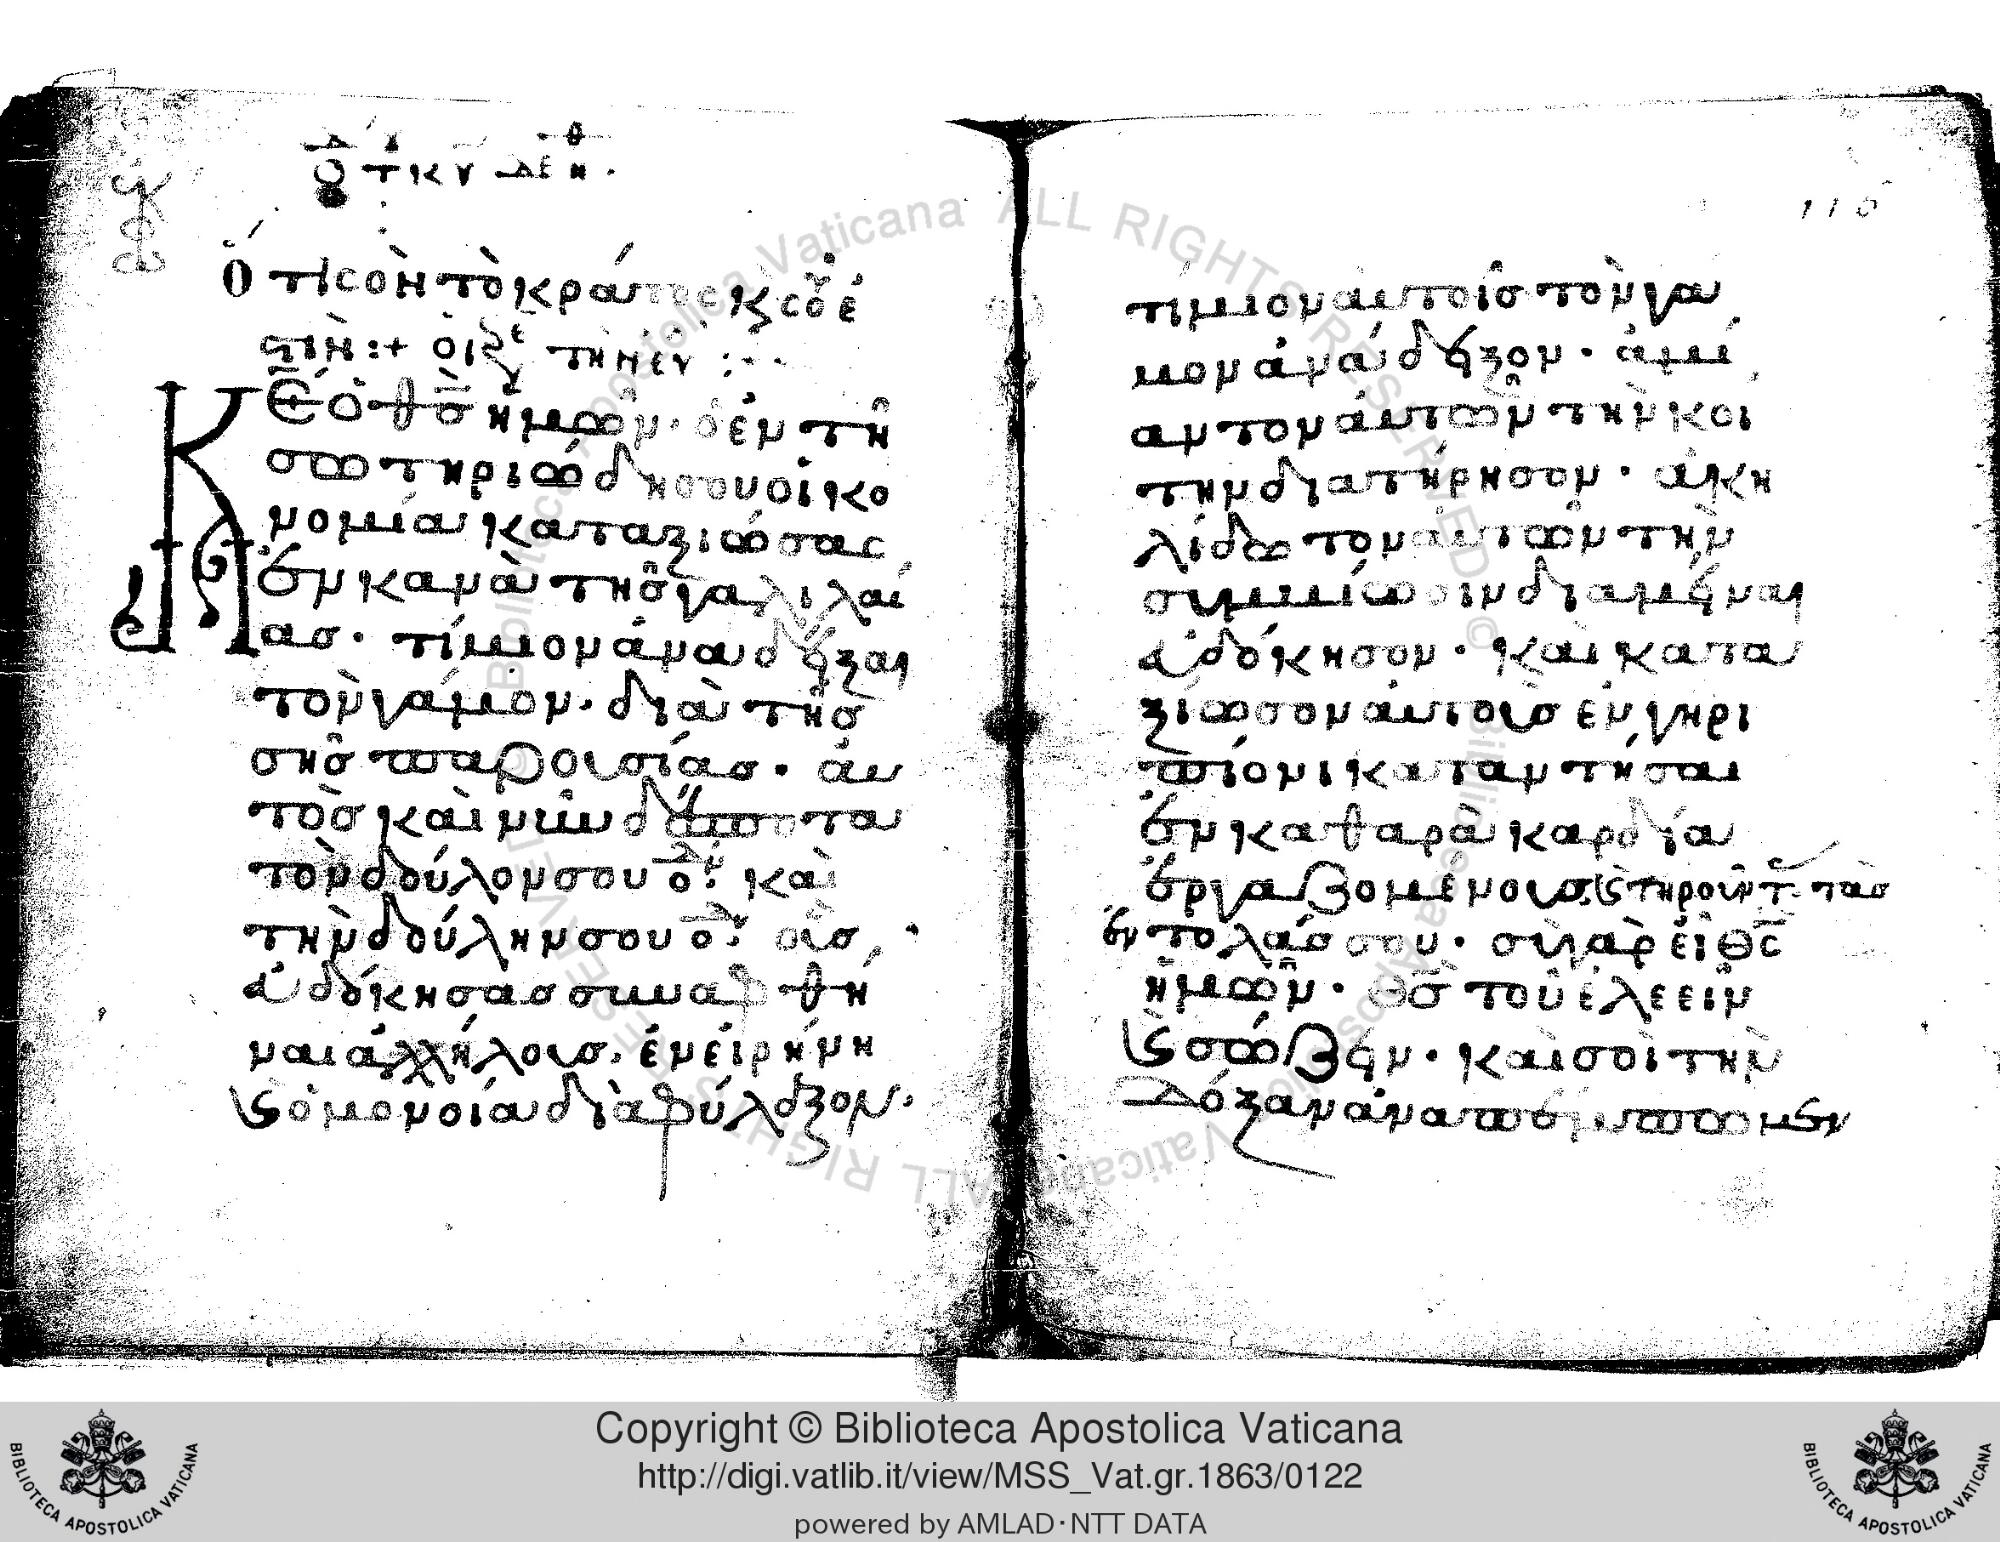 τ κυ δεη.
Ὅτι σὸν τὸ κράτος κς σοῦ ἐ
στὶν :+
Κε ὁ θσ ἡμῶν · ὁ ἐν τῆ
σωτηριώδη σου οἰκο
νομία καταξιώσασ
ἐν κανὰ τῆσ γαλιλαί
ασ · τίμιον ἀναδεῖξαι
τὸν γάμον · διὰ τῆσ
σῆσ παρουσίασ · αὐ
τὸσ καὶ νῦν δέσποτα
τὸν δούλον σου ὁδ καὶ
τὴν δούλην σου ὁδ οἷσ
εὐδόκησασ συναφθῆ
ναι ἀλλήλοισ. ἐν εἰρήνη
ϛ ὁμονοία διαφύλαξον.
116
τίμιον αὐτοῖσ τὸν γά
μον ἀνάδειξον · ἀμί
αντον αὐτῶν τὴν κοί
την διατήρησον · ἀκη
λίδωτον αὐτῶν τὴν
συμβίωσιν διαμεῖναι
εὐδόκησον · καὶ κατα
ξίωσον αὐτοὺσ ἐν γήρει
πίονι καταντήσαι
ἐν καθαρὰ καρδία
ἐργαζομένουσ ϛ τηροῦντ τὰσ
ἐντολάσ σου · σὺ γὰρ εἶ ὁ θσ
ἡμῶν · θσ τοῦ ἐλεεῖν
ϛ σώζειν · καὶ σοὶ τὴν
δόξαν ἀναπέμπωμεν
Copyright © Biblioteca Apostolica Vaticana
http://digi.vatlib.it/view/MSS_Vat.gr.1863/0122
powered by AMLAD·NTT DATA
BIBLIOTECA APOSTOLICA VATICANA
BIBLIOTECA APOSTOLICA VATICANA